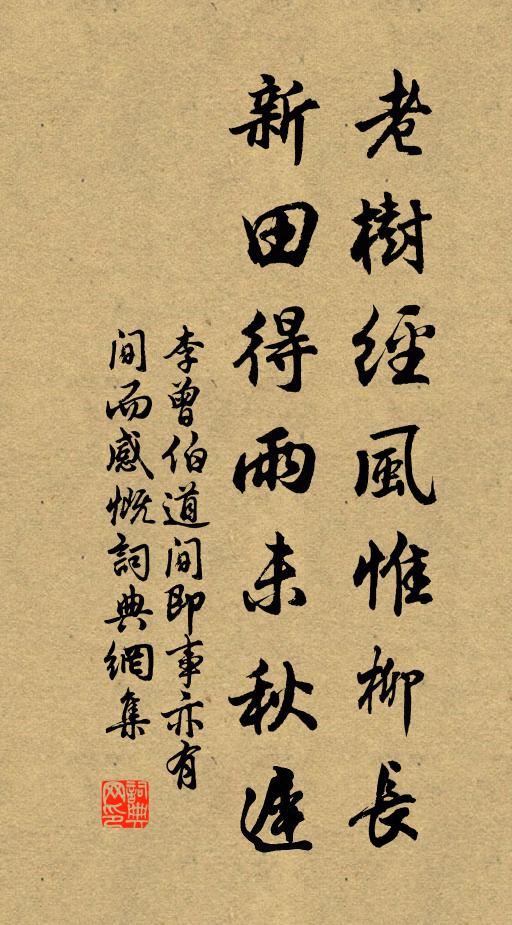 老樹經風惟柳長
新田得雨未秋遲
李曾伯道间即事亦有
间而感慨詞典網集
詞典
网印